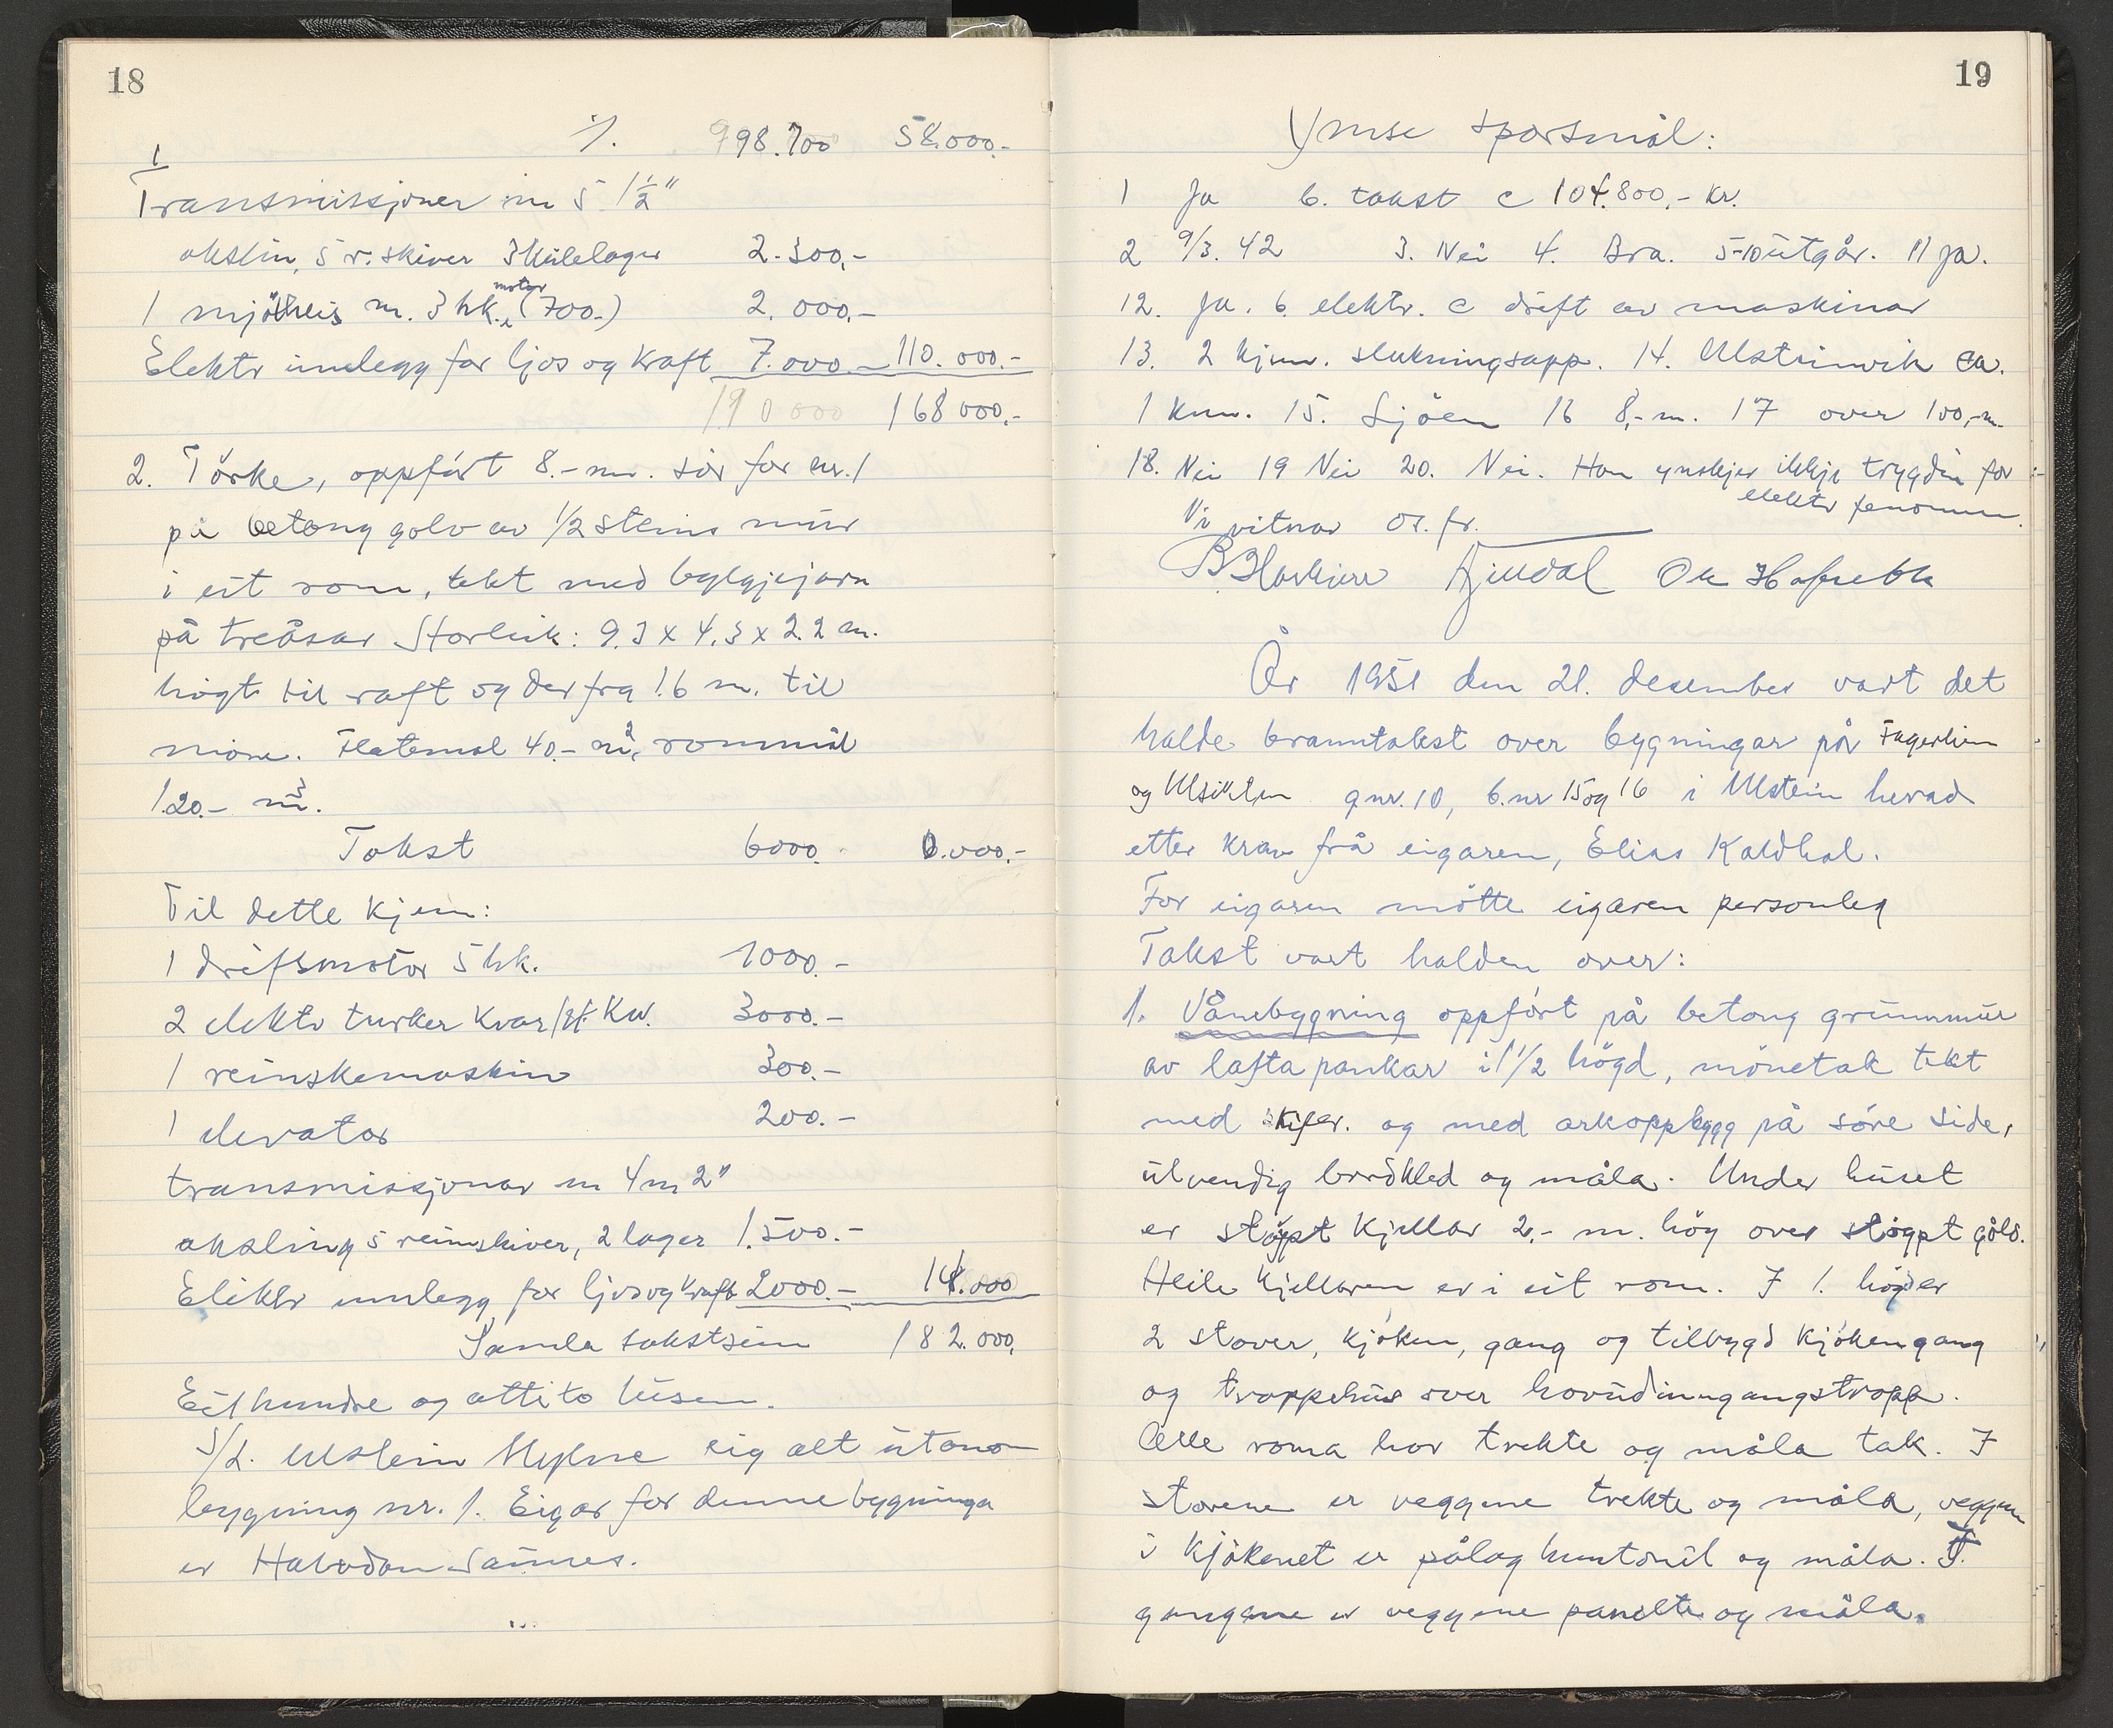 18
./. 998.700 58.000.-
1
Transmissjoner m 5 1½"
akslin, 5 r. skiver 3 kulelager 2.300,-
1 mjölheis m. 3 hk. motor (700.-) 2.000,-
Elektr innlegg for ljos og kraft 7.000.- 110.000.-
110 000 168 000.-
2. Törke, oppfört 8.- m. sör for nr. 1
på betong golv av 1/2 steins mur
i eit rom, tekt med bylgjejarn
på treåsar Storleik: 9.3 x 4.3 x 2.2 m.
högt til raft og derfra 1.6 m. til
möne. Flatemål 40.- m², rommål
120.- m³.
Takst 6000. 6.000.-
Til dette kjem:
1 drifsmotor 5 hk. 1000.-
2 elektr turker kvar 1 st. Kw. 3000.-
1 reinskemaskin 300.-
1 elevator 200.-
transmissjonar m 4 m 2"
aksling 5 reimskiver, 2 lager 1.500.-
Elektr innlegg for ljos og kraft 2000.- 14.000
Samla takstsum 182.000,
Eithundre og åttito tusen.
S/L. Ulstein Mylne eig alt utano
bygning nr. 1. Eigar for denne bygninga
er Halvdan Saunes.
19
Ymse spørsmål:
1 Ja b. takst c 104.800,- kr.
2 9/3. 42 3. Nei 4. Bra. 5-10 utgår. 11 Ja.
12. Ja. b. elektr. c drift av maskinar
13. 2 kjem. slukningsapp. 14. Ulsteinvik ca.
1 km. 15. Sjöen 16 8,- m. 17 over 100,- m.
18. Nei 19 Nei 20. Nei. Han ynskjer ikkje trygdin for
elektr fenomen.
Vi vitnar os. fr.
År 1951 den 21. desember vart det
halde branntakst over bygningar på Fagerheim
og Utsikten gnr. 10, b.nr 15 og 16 i Ulstein herad
etter krav frå eigaren, Elias Kaldhol.
For eigaren mötte eigaren personleg
Takst vart halden over:
1. Vånebygning oppfört på betong grunnmur
av lafta pankar i 1 1/2 högd, mönetak tekt
med skifer. og med arkoppbygg på söre side,
utvendig bordkled og måla. Under huset
er stöpt kjellar 2,- m. hög over stöpt golv.
Heile kjellaren er i eit rom. I 1. högd er
2 stover, kjöken, gang og tilbygd kjökengang
og trappehus over hovudinngangstrapp.
Alle roma har trekte og måla tak. I
stovene er veggene trekte og måla, veggen
i kjökenet er pålag huntonit og måla. I
gangene er veggene panelte og måla.